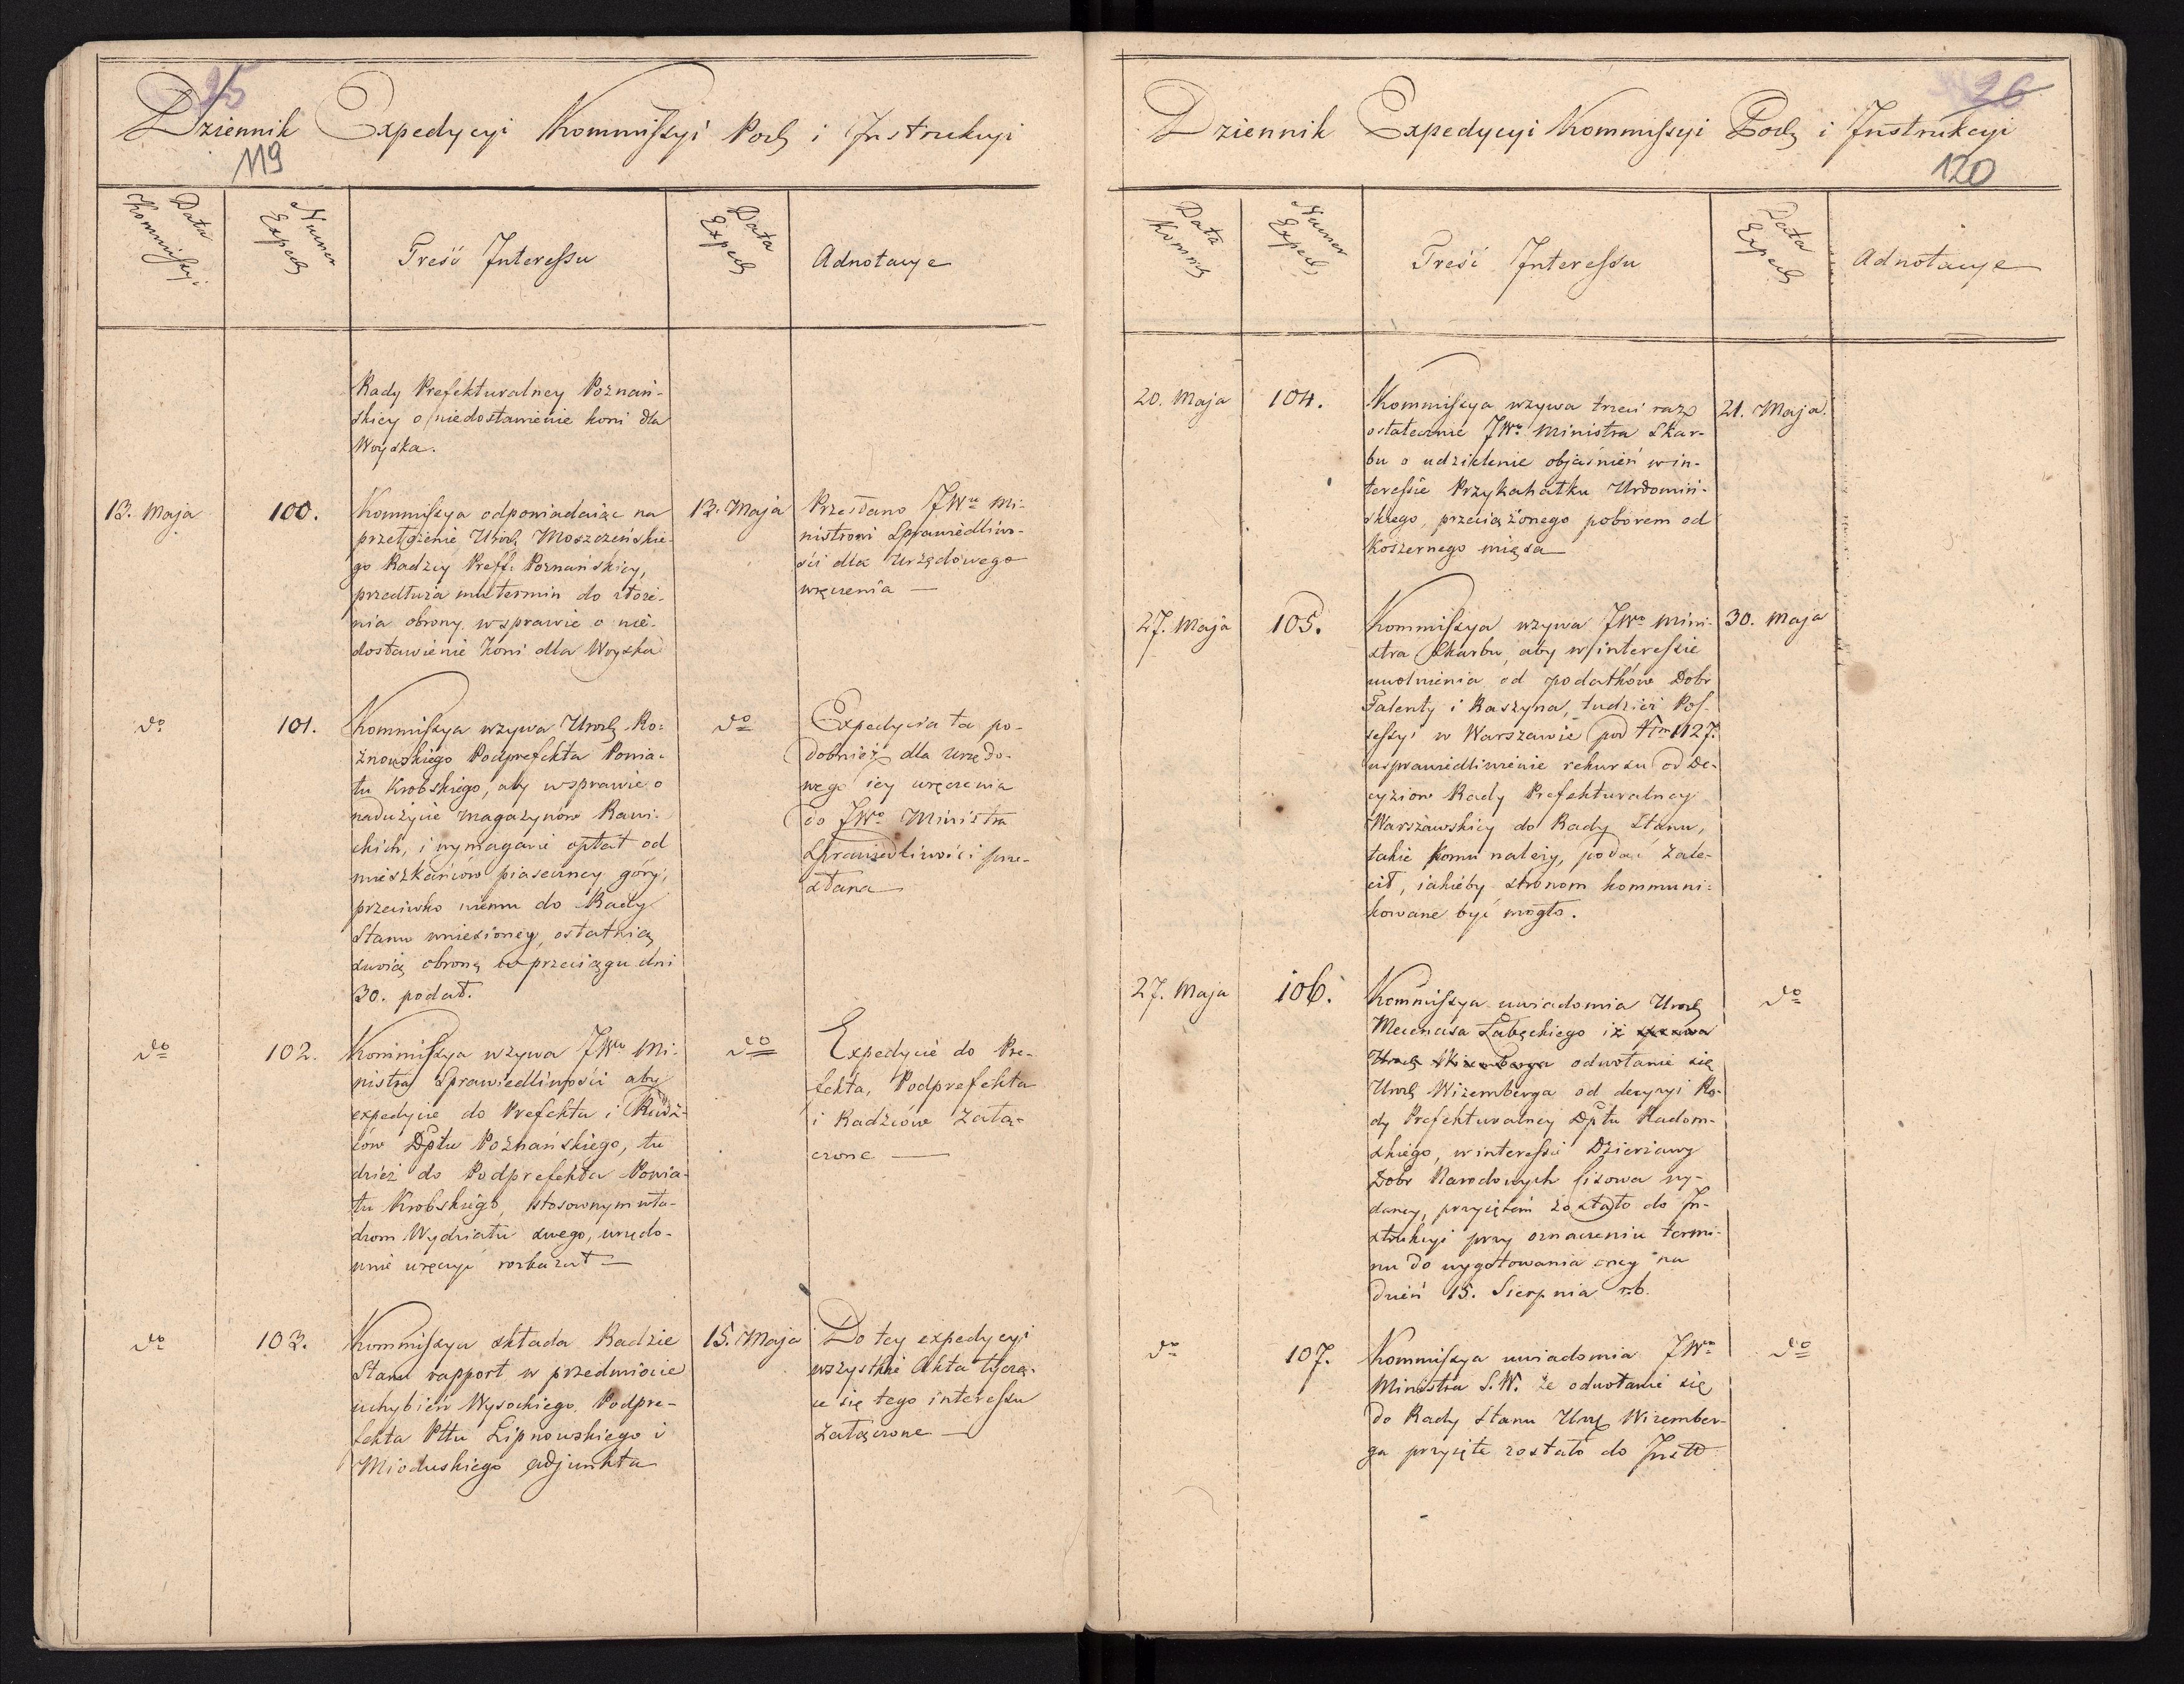 25
Dziennik Expedycyi Kommissyi Pod. i Instrukcyi
119
Data Kommissyi
Numer Exped.
Treść Interessu
Data Exped.
Adnotacye
Rady Prefekturalney Poznań-
skiey o niedostawienie koni dla
Woyska.
13. Maja
100.
Kommissya odpowiadaiąc na
przełożenie Urodz. Moszczeńskie-
go Radzcy Preff: Poznańskiey,
przedłuża mu termin do złoże-
nia obrony w sprawie o nie-
dostawienie Koni dla Woyska
13. Maja
Przesłano JWu Mi-
nistrowi Sprawiedliwo-
ści dla urzędowego
wręczenia —
do
101.
Kommissya wzywa Urodz. Ro-
żnowskiego Podprefekta Powia-
tu Krobskiego, aby w sprawie o
nadużycie magazynów Rawi-
ckich, i wymaganie opłat od
mieszkańców piaseczney góry,
przeciwko niemu do Rady
Stanu wniesioney, ostatnią
swoią obronę w przeciągu dni
30. podał.
do
Expedycia ta po-
dobnież dla urzędo-
wego iey wręczenia
do JWo Ministra
Sprawiedliwości prze-
słana
do
102.
Kommissya wzywa JWo Mi-
nistra Sprawiedliwości aby
expedycie do Prefekta i Radz-
ców Dptu Poznańskiego, tu
dzież do Podprefekta Powia-
tu Krobskiego, stosownym wła-
dzom Wydziału swego, urzędo-
wnie wręczyć rozkazał —
do
Expedycie do Pre-
fekta, Podprefekta
i Radzców załą-
czone —
do
103.
Kommissya składa Radzie
Stanu rapport w przedmiocie
uchybień Wysockiego Podpre-
fekta Pttu Lipnowskiego i
Mioduskiego Adjunkta
15. Maja
Do tey expedycyi
wszystkie Akta tyczą-
ce się tego interessu
załączone —
26
Dziennik Expedycyi Kommissyi Podz. i Instrukcyi
120
Data Kommis.
Numer Exped.
Treść Interessu
Data Exped.
Adnotacye
20. Maja
104.
Kommissya wzywa trzeci raz
ostatecznie JWo Ministra Skar-
bu o udzielenie objaśnień w in-
teressie Przykahałku Urdomiń-
skiego, przeciążonego poborem od
Koszernego mięsa
21. Maja.
27. Maja
105.
Kommissya wzywa JWo Mini-
stra Skarbu, aby w interessie
uwolnienia od podatków Dobr
Falenty i Raszyna, tudzież Pos-
sessyi w Warszawie pod Nrm 1127.
usprawiedliwienie rekursu od De-
cyziow Rady Prefekturalney
Warszawskiey do Rady Stanu,
takie komu należy, podać zale-
cił, iakieby stronom kommuni-
kowane być mogło.
30. Maja
27. Maja
106.
Kommissya uwiadomia Urodz.
Mecenasa Łabęckiego iż sprawa
Urodz. Wizemberga odwołanie się
Urodz. Wizemberga od decyzyi Ra-
dy Prefekturalney Dptu Radom-
skiego, w interessie Dzierżawy
Dobr Narodowych Lisowa wy-
daney, przyiętem zostało do In-
strukcyi przy oznaczeniu termi-
nu do wygotowania oney na
dzień 15. Sierpnia r.b.
do
do
107.
Kommissya uwiadomia JWo
Ministra S.W. że odwołanie się
do Rady Stanu Urz. Wizember-
ga przyięte zostało do Instr
do